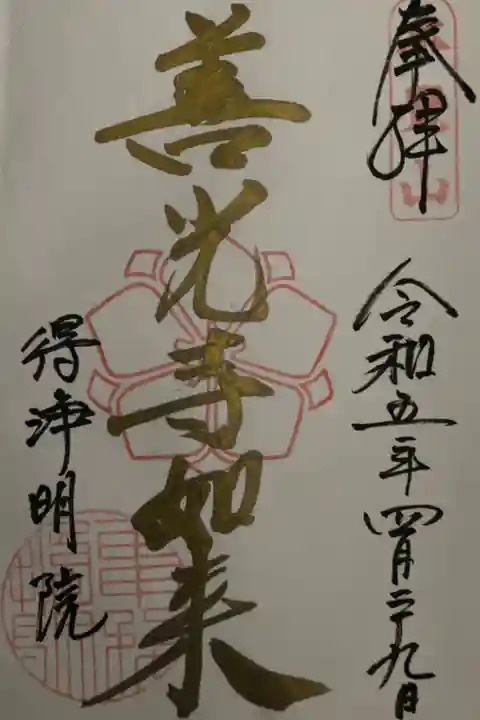 奉拝
令和五年四月二十九日
善光寺如来
得浄明院